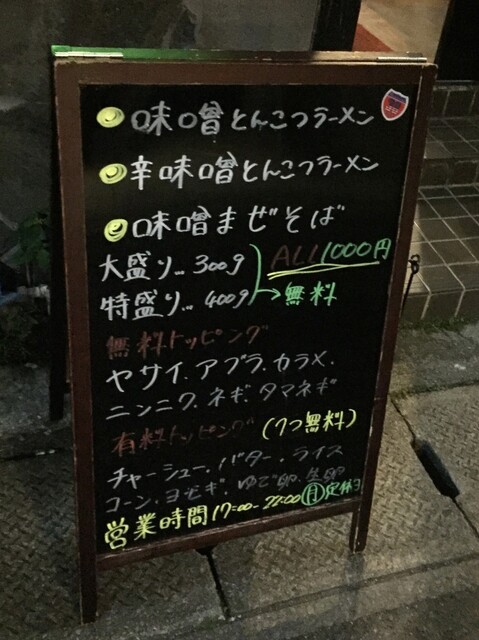 味噌とんこつラーメン
辛味噌とんこつラーメン
味噌まぜそば
大盛り… 300g
ALL 1000円
特盛り… 400g
→無料
無料トッピング
ヤサイ.アブラ.カラメ.
ニンニク.ネギ.タマネギ
有料トッピング (1つ無料)
チャーシュー.バター.ライス
コーン.ヨモギ.ゆで卵.生卵
営業時間17:00-22:00 月定休日